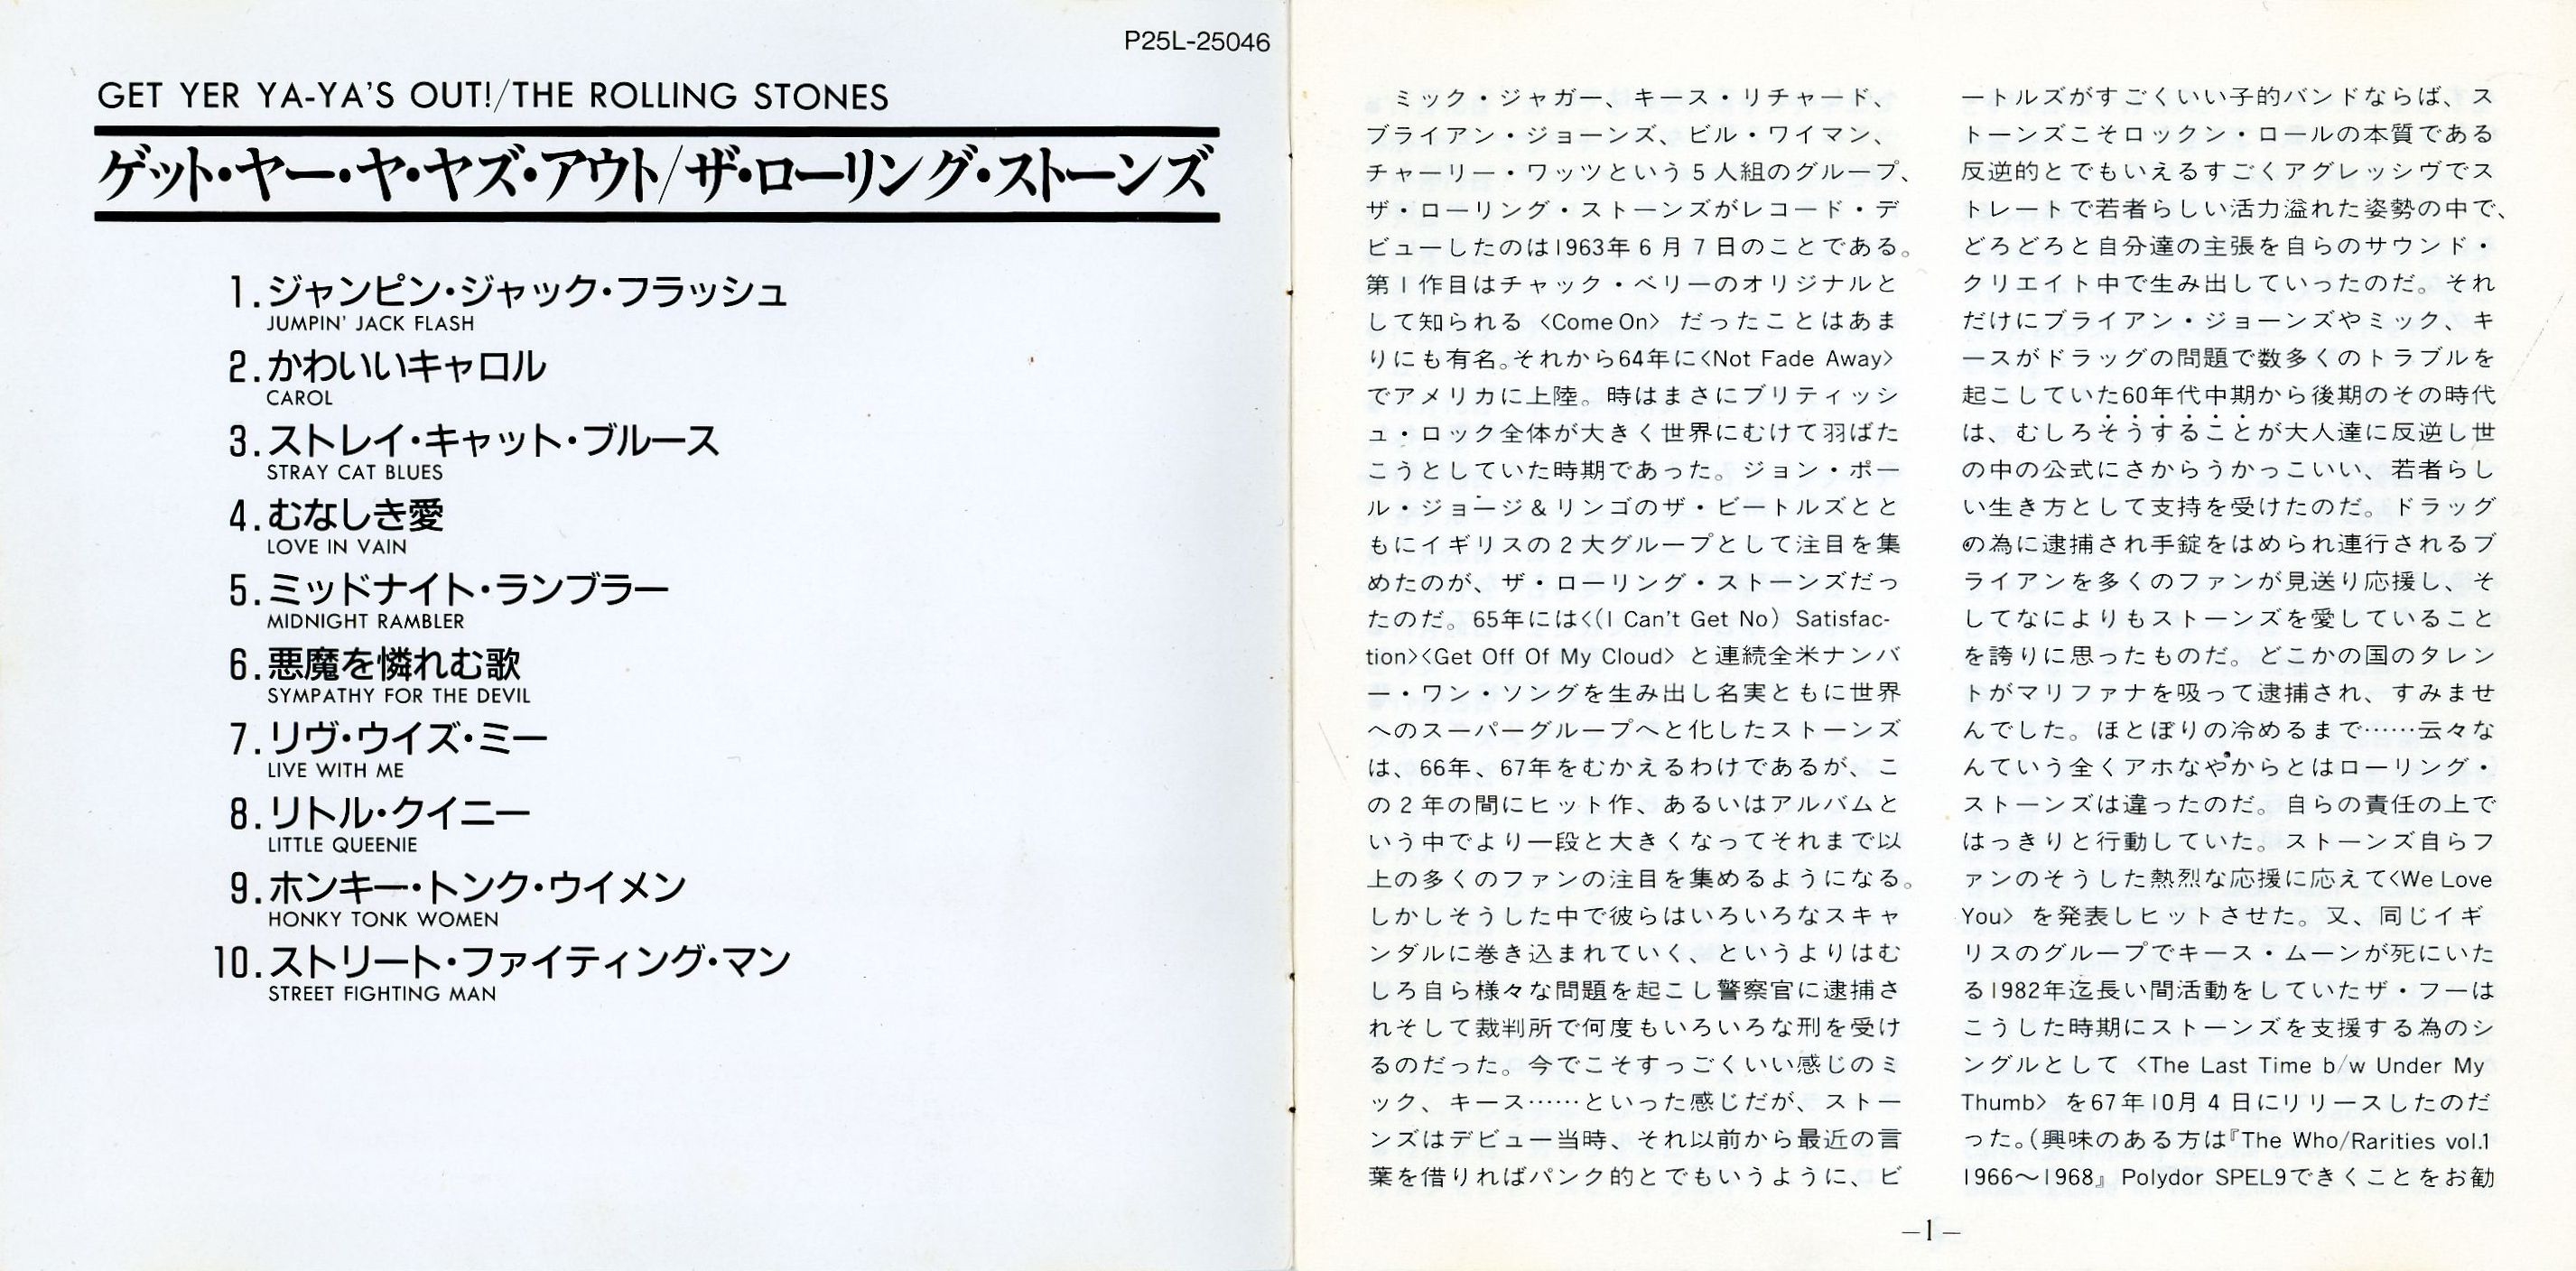 P25L-25046
GET YER YA-YA'S OUT!/THE ROLLING STONES
ゲット・ヤー・ヤ・ヤズ・アウト/ザ・ローリング・ストーンズ
1.ジャンピン・ジャック・フラッシュ
JUMPIN' JACK FLASH
2.かわいいキャロル
CAROL
3.ストレイ・キャット・ブルース
STRAY CAT BLUES
4.むなしき愛
LOVE IN VAIN
5.ミッドナイト・ランブラー
MIDNIGHT RAMBLER
6.悪魔を憐れむ歌
SYMPATHY FOR THE DEVIL
7.リヴ・ウイズ・ミー
LIVE WITH ME
8.リトル・クイニー
LITTLE QUEENIE
9.ホンキー・トンク・ウイメン
HONKY TONK WOMEN
10.ストリート・ファイティング・マン
STREET FIGHTING MAN
ミック・ジャガー、キース・リチャード、
ブライアン・ジョーンズ、ビル・ワイマン、
チャーリー・ワッツという5人組のグループ、
ザ・ローリング・ストーンズがレコード・デ
ビューしたのは1963年6月7日のことである。
第1作目はチャック・ベリーのオリジナルと
して知られる〈Come On〉だったことはあま
りにも有名。それから64年に〈Not Fade Away〉
でアメリカに上陸。時はまさにブリティッシ
ュ・ロック全体が大きく世界にむけて羽ばた
こうとしていた時期であった。ジョン・ポー
ル・ジョージ&リンゴのザ・ビートルズとと
もにイギリスの2大グループとして注目を集
めたのが、ザ・ローリング・ストーンズだっ
たのだ。65年には〈(I Can't Get No) Satisfac-
tion〉〈Get Off Of My Cloud〉と連続全米ナンバ
ー・ワン・ソングを生み出し名実ともに世界
へのスーパーグループへと化したストーンズ
は、66年、67年をむかえるわけであるが、こ
の2年の間にヒット作、あるいはアルバムと
いう中でより一段と大きくなってそれまで以
上の多くのファンの注目を集めるようになる。
しかしそうした中で彼らはいろいろなスキャ
ンダルに巻き込まれていく、というよりはむ
しろ自ら様々な問題を起こし警察官に逮捕さ
れそして裁判所で何度もいろいろな刑を受け
るのだった。今でこそすっごくいい感じのミ
ック、キース……といった感じだが、ストー
ンズはデビュー当時、それ以前から最近の言
葉を借りればパンク的とでもいうように、ビ
ートルズがすごくいい子的バンドならば、ス
トーンズこそロックン・ロールの本質である
反逆的とでもいえるすごくアグレッシヴでス
トレートで若者らしい活力溢れた姿勢の中で、
どろどろと自分達の主張を自らのサウンド・
クリエイト中で生み出していったのだ。それ
だけにブライアン・ジョーンズやミック、キ
ースがドラッグの問題で数多くのトラブルを
起こしていた60年代中期から後期のその時代
は、むしろそうすることが大人達に反逆し世
の中の公式にさからうかっこいい、若者らし
い生き方として支持を受けたのだ。ドラッグ
の為に逮捕され手錠をはめられ連行されるブ
ライアンを多くのファンが見送り応援し、そ
してなによりもストーンズを愛していること
を誇りに思ったものだ。どこかの国のタレン
トがマリファナを吸って逮捕され、すみませ
んでした。ほとぼりの冷めるまで……云々な
んていう全くアホなやからとはローリング・
ストーンズは違ったのだ。自らの責任の上で
はっきりと行動していた。ストーンズ自らフ
ァンのそうした熱烈な応援に応えて〈We Love
You〉を発表しヒットさせた。又、同じイギ
リスのグループでキース・ムーンが死にいた
る1982年迄長い間活動をしていたザ・フーは
こうした時期にストーンズを支援する為のシ
ングルとして〈The Last Time b/w Under My
Thumb〉を67年10月4日にリリースしたのだ
った。(興味のある方は『The Who/Rarities vol.1
1966〜1968』Polydor SPEL9できくことをお勧
—1—